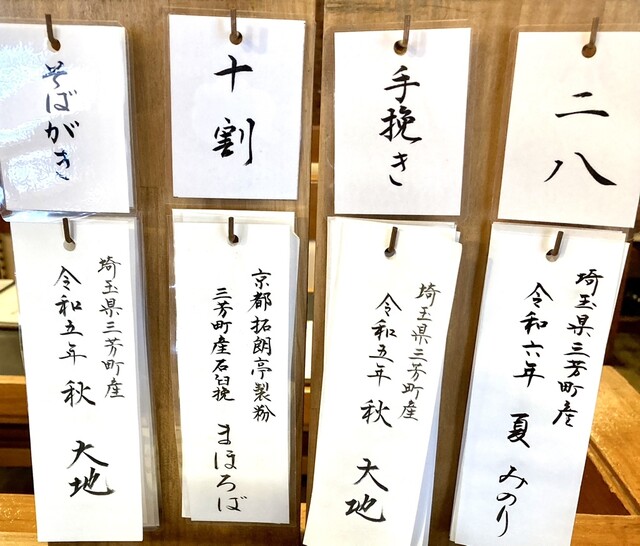 二八
埼玉県三芳町産
令和六年 夏 みのり
手挽き
埼玉県三芳町産
令和五年 秋 大地
十割
京都拓朗亭製粉
三芳町産石臼挽 まほろば
そばがき
埼玉県三芳町産
令和五年 秋 大地